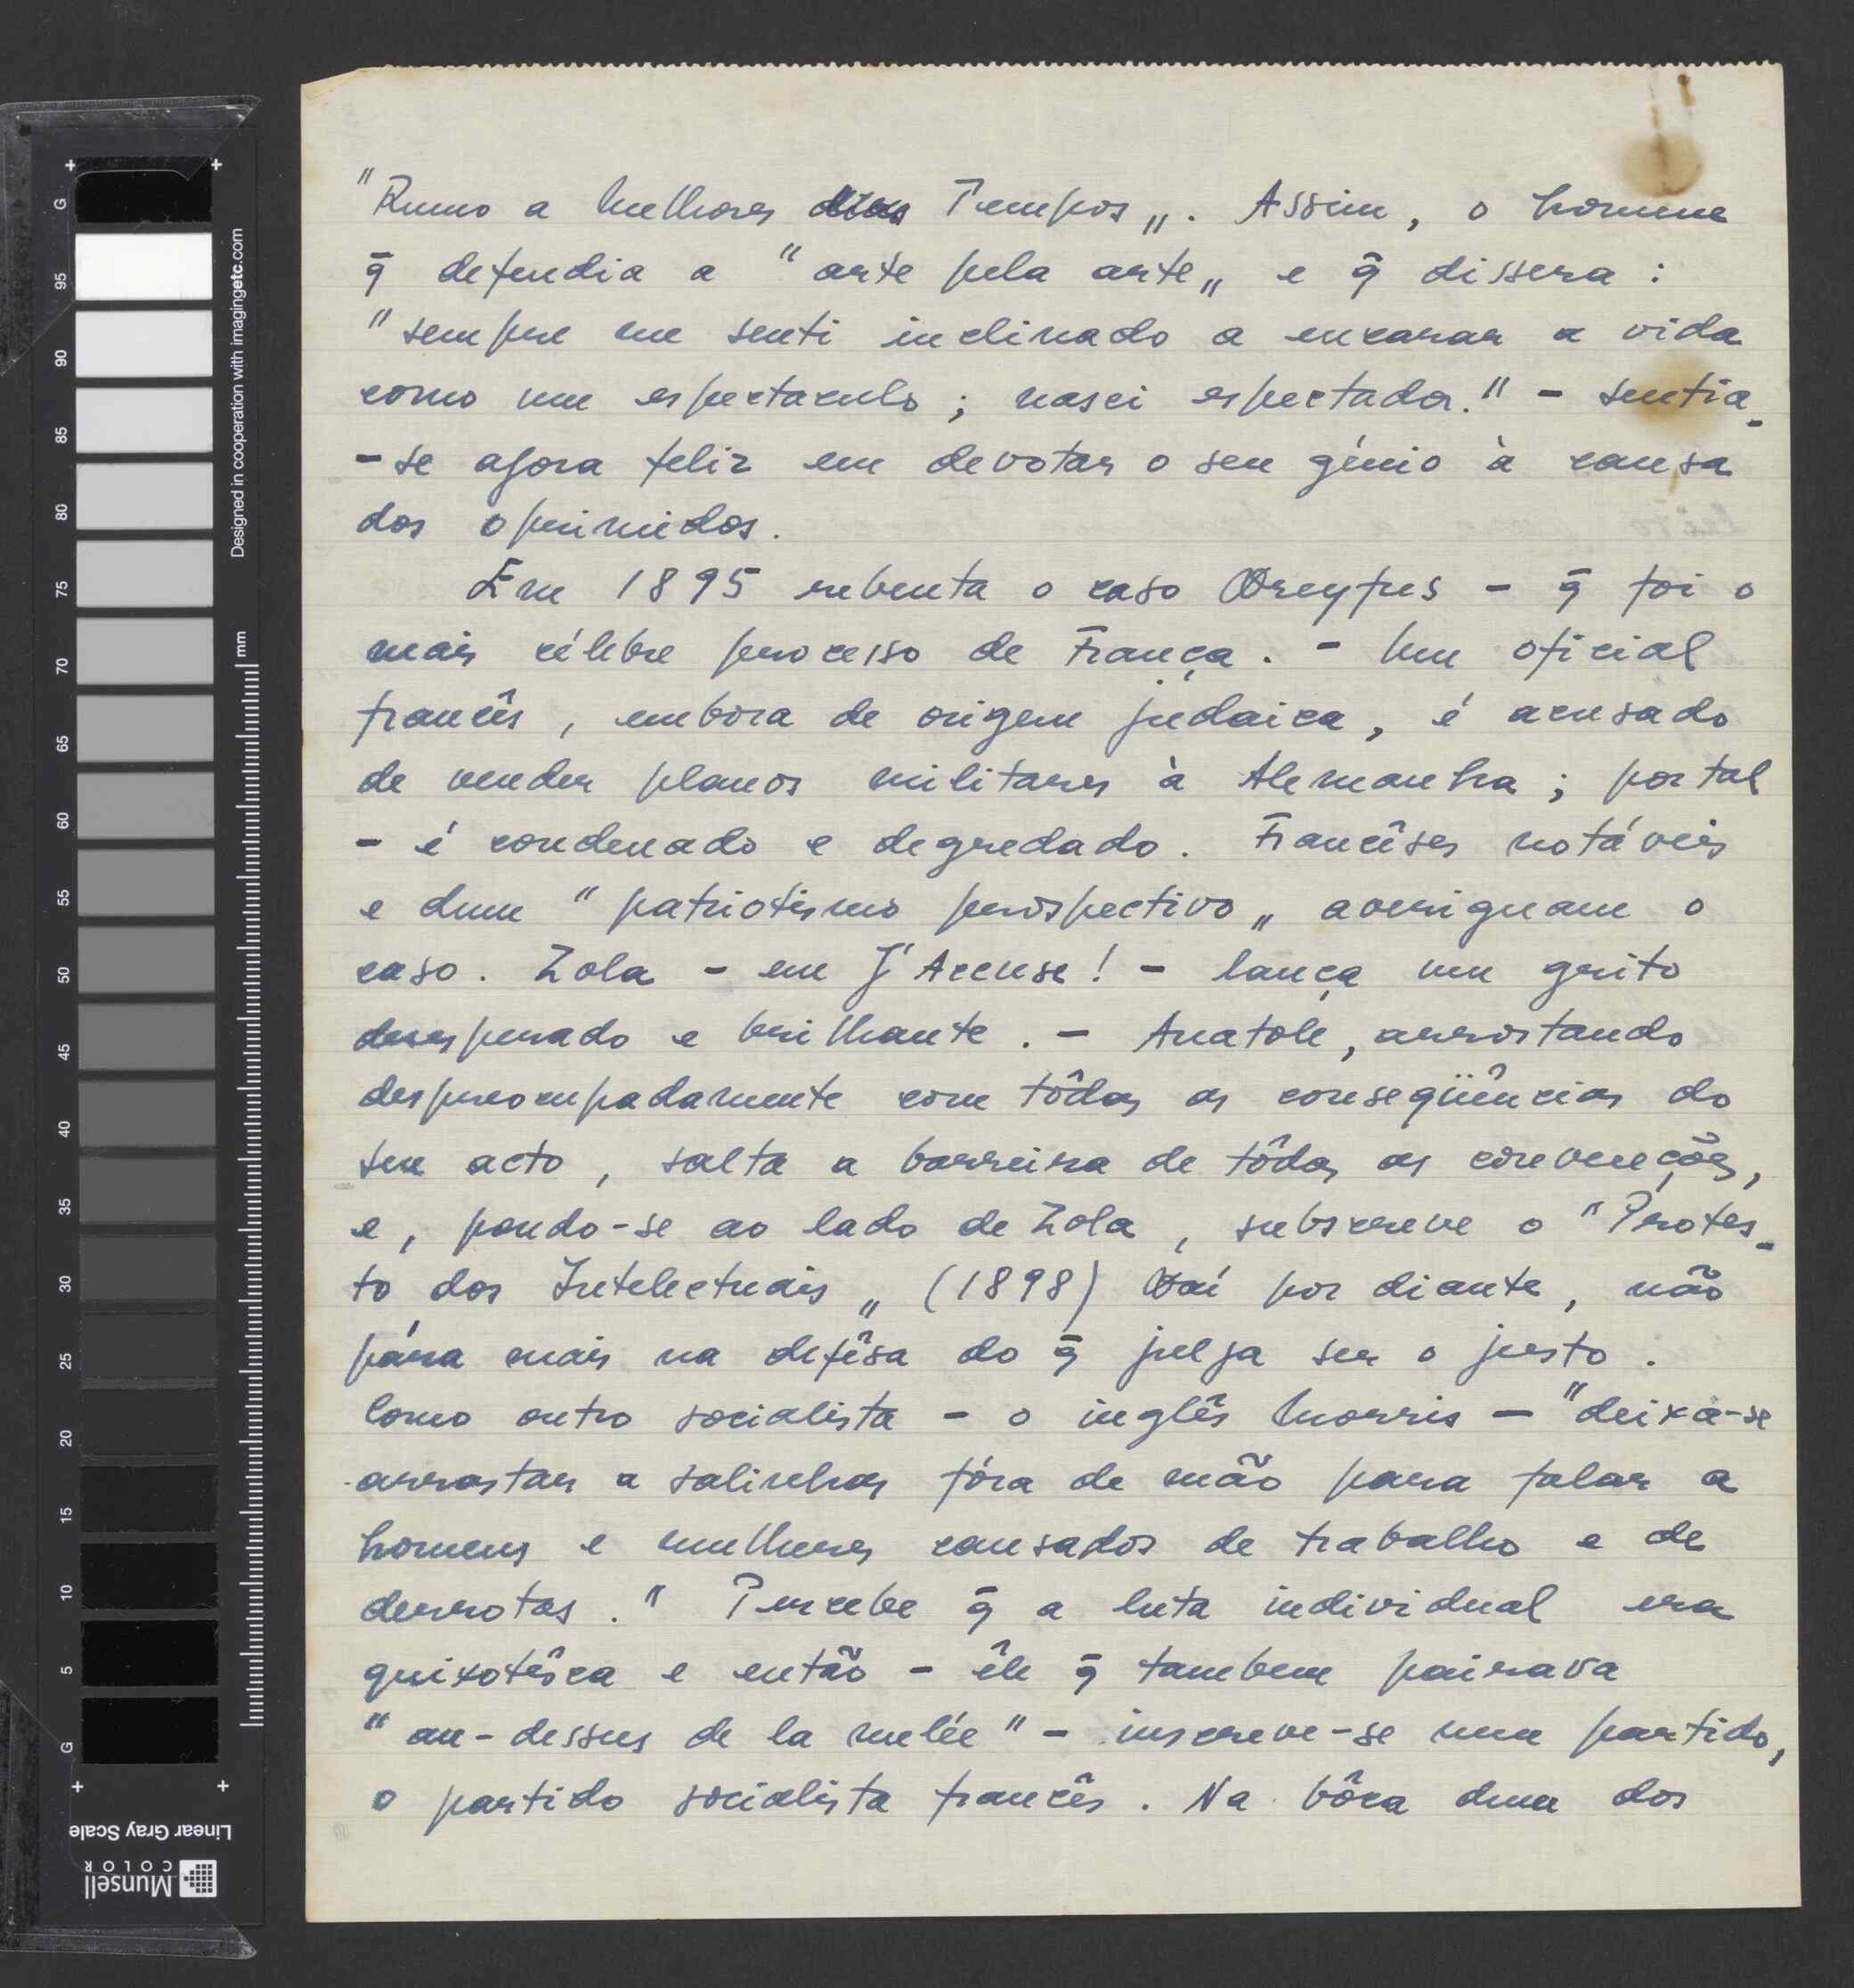 "Rumo a Melhores dias Tempos„. Assim, o homem
q̄ defendia a "arte pela arte„ e q̄ dissera:
"sempre me senti inclinado a encarar a vida
como um espectaculo; nasci espectador." - sentia-
-se agora feliz em devotar o seu génio à causa
dos oprimidos.
Em 1895 rebenta o caso Dreyfus - q̄ foi o
mais célebre processo de França. - Um oficial
francês, embora de origem judaica, é acusado
de vender planos militares à Alemanha; por tal
- é condenado e degredado. Francêses notáveis
e dum "patriotismo prospectivo„ averiguam o
caso. Zola - em J'Accuse! - lança um grito
desesperado e brilhante. - Anatole, arrostando
despreocupadamente com tôdas as conseqüências do
seu acto, salta a barreira de tôdas as convenções,
e, pondo-se ao lado de Zola, subscreve o "Protes-
to dos Intelectuais„ (1898) Daí por diante, não
pára mais na defêsa do q̄ julga ser o justo.
Como outro socialista - o inglês Morris - "deixa-se
arrastar a salinhas fóra de mão para falar a
homens e mulheres cansados de trabalho e de
derrotas." Percebe q̄ a luta individual era
quixotêsca e então - êle q̄ tambem pairava
"au-dessus de la melée" - inscreve-se num partido,
o partido socialista francês. Na bôca dum dos
Designed in cooperation with imagingetc.com
mm
G
95
90
85
80
75
70
65
60
55
50
45
40
35
30
25
20
15
10
5
G
Linear Gray Scale
Munsell
COLOR